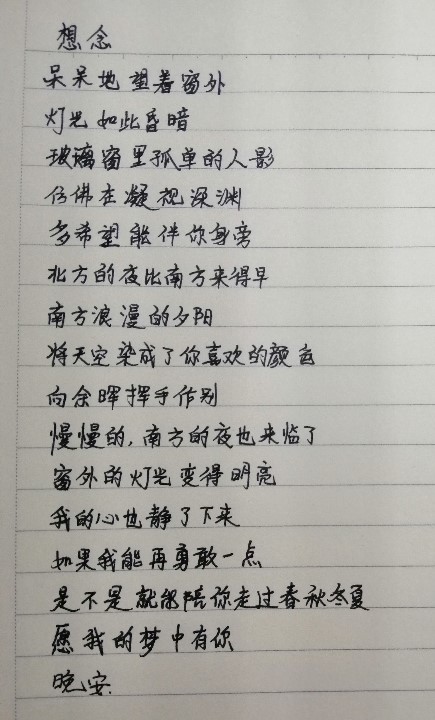 想念
呆呆地望着窗外
灯光如此昏暗
玻璃窗里孤单的人影
仿佛在凝视深渊
多希望能伴你身旁
北方的夜比南方来得早
南方浪漫的夕阳
将天空染成了你喜欢的颜色
向余晖挥手作别
慢慢的,南方的夜也来临了
窗外的灯光变得明亮
我的心也静了下来
如果我能再勇敢一点
是不是就能陪你走过春秋冬夏
愿我的梦中有你
晚安.